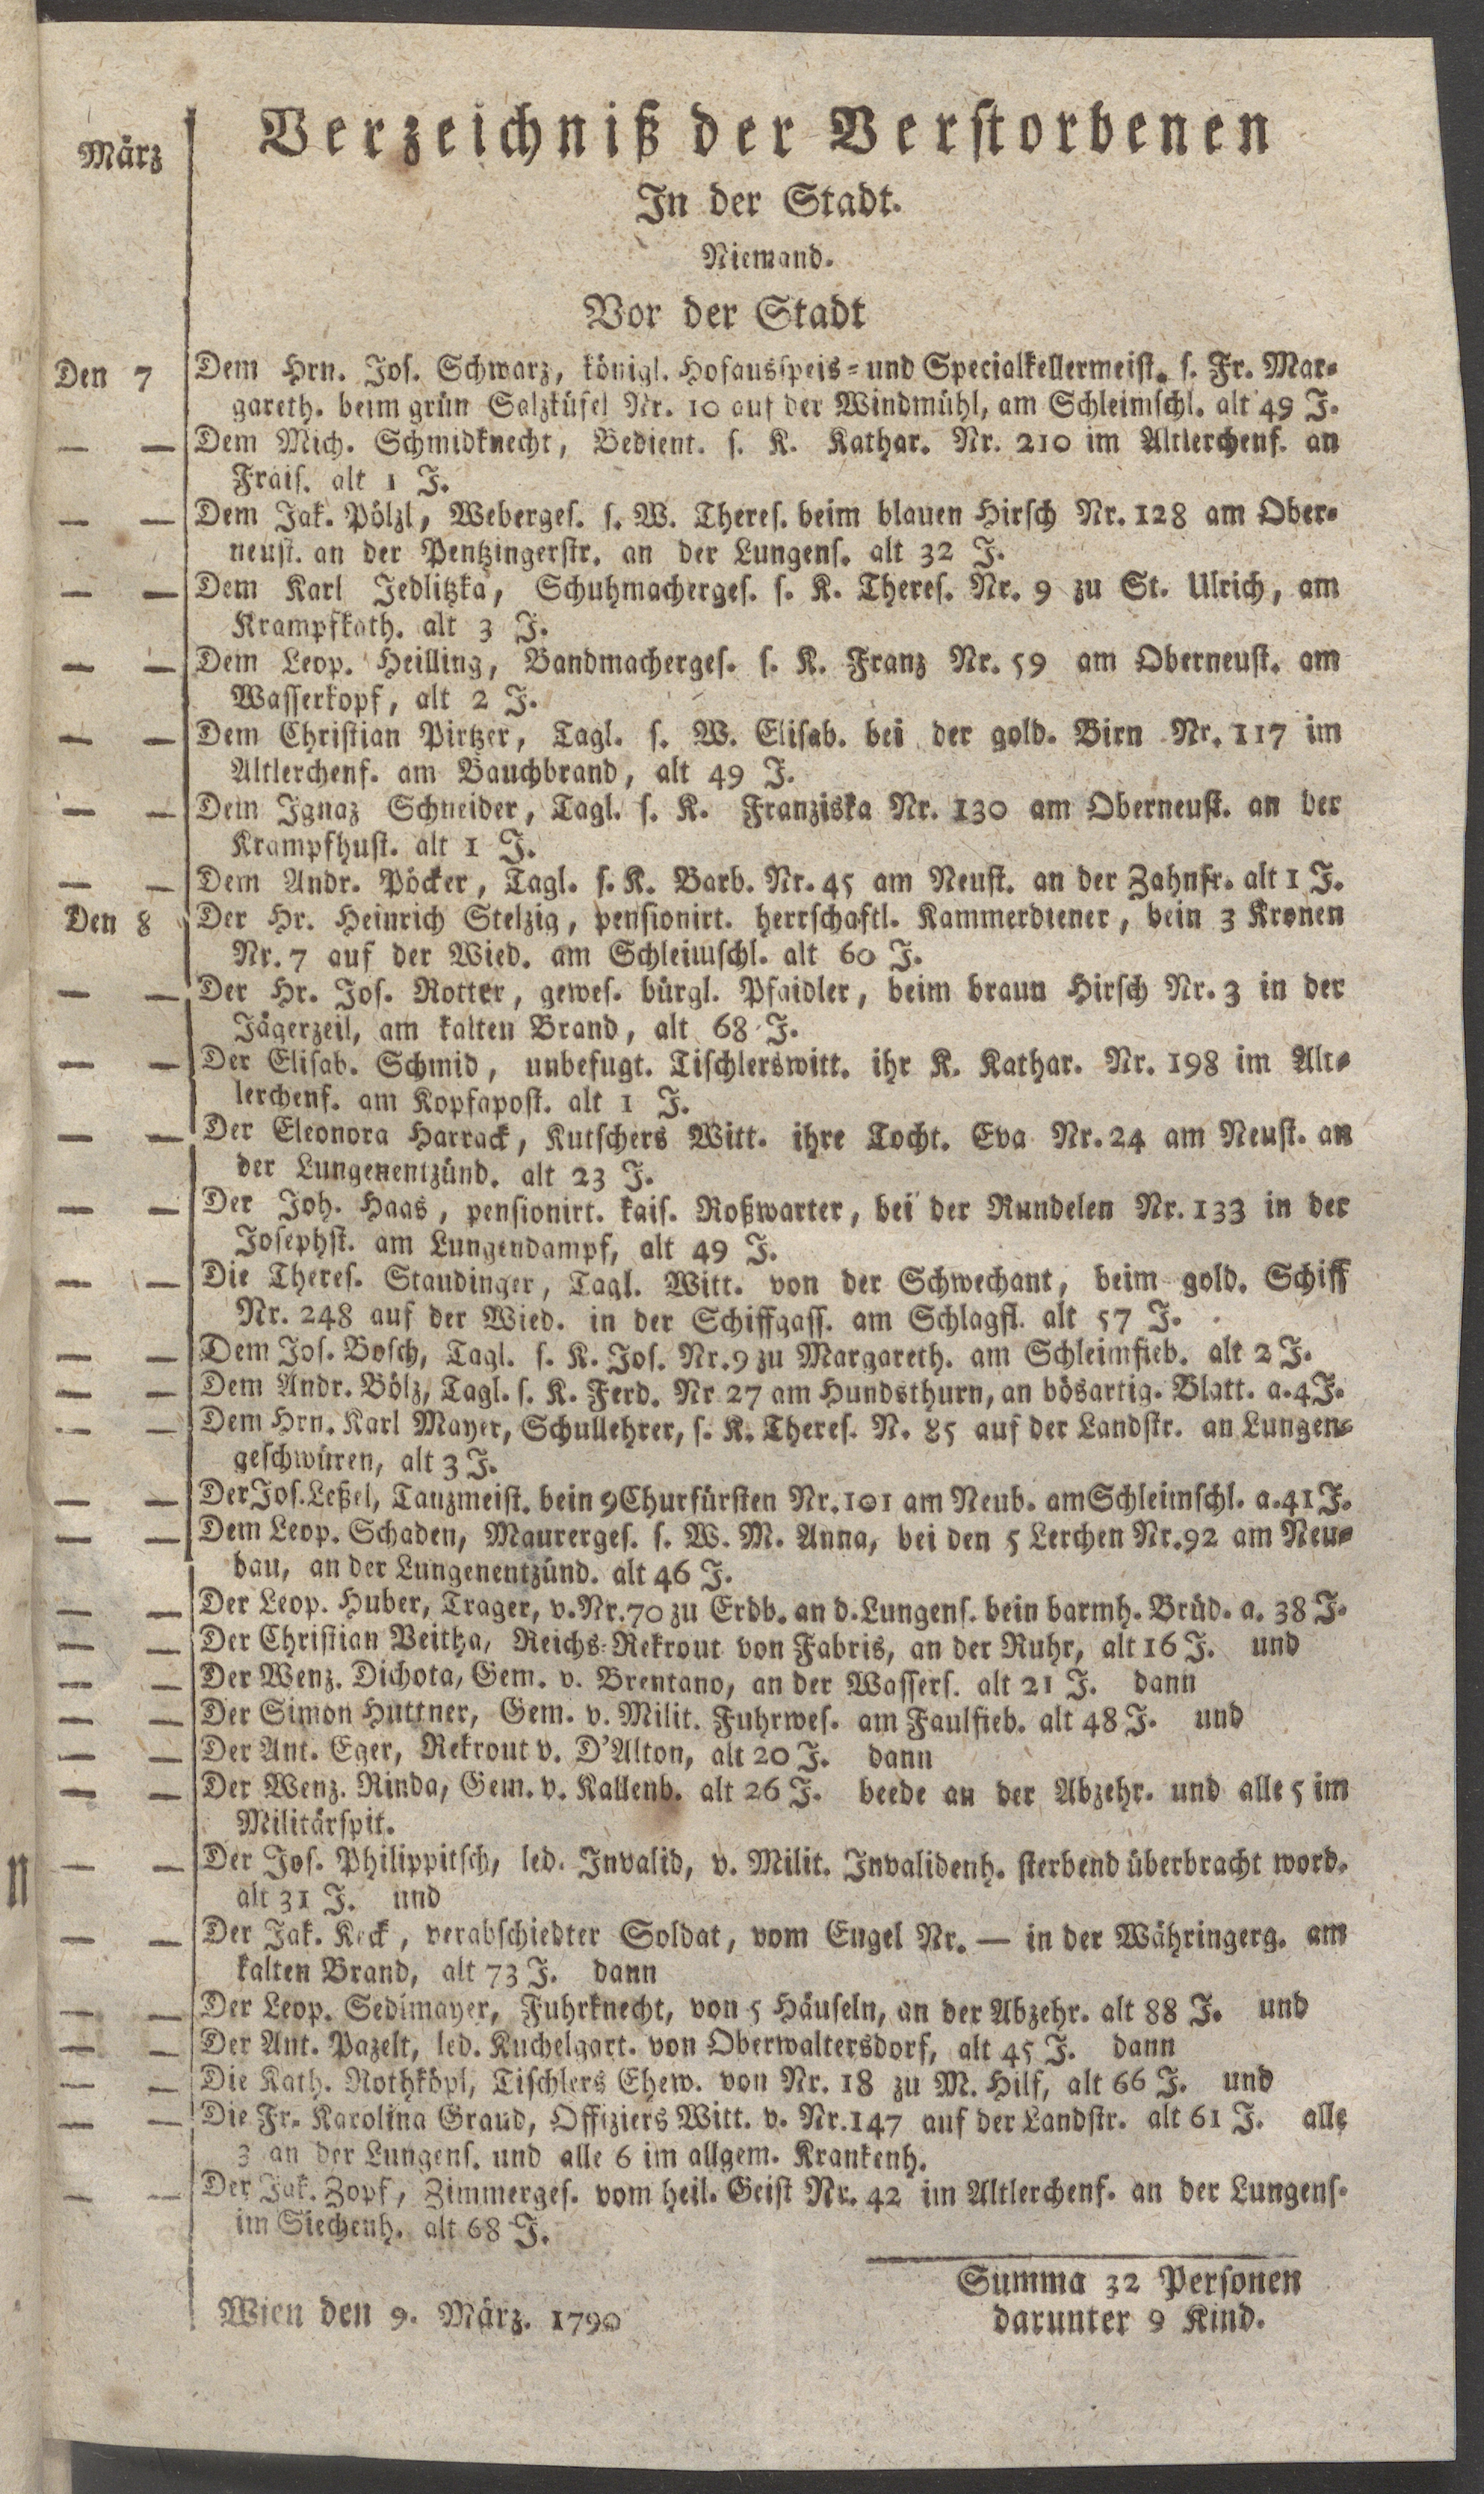 März
Verzeichniß der Verstorbenen
In der Stadt.
Niemand.
Vor der Stadt
Den 7 Dem Hrn. Jos. Schwarz, königl. Hofausspeis- und Specialkellermeist. s. Fr. Mar-
gareth. beim grün Salzküfel Nr. 10 auf der Windmühl, am Schleimschl. alt 49 J.
— — Dem Mich. Schmidknecht, Bedient. s. K. Kathar. Nr. 210 im Altlerchenf. an
Frais. alt 1 J.
— — Dem Jak. Pölzl, Weberges. s. W. Theres. beim blauen Hirsch Nr. 128 am Ober-
neust. an der Pentzingerstr. an der Lungens. alt 32 J.
— — Dem Karl Jedlitzka, Schuhmacherges. s. K. Theres. Nr. 9 zu St. Ulrich, am
Krampfkath. alt 3 J.
— — Dem Leop. Heilling, Bandmacherges. s. K. Franz Nr. 59 am Oberneust. am
Wasserkopf, alt 2 J.
— — Dem Christian Pirtzer, Tagl. s. W. Elisab. bei der gold. Birn Nr. 117 im
Altlerchenf. am Bauchbrand, alt 49 J.
— — Dem Ignaz Schneider, Tagl. s. K. Franziska Nr. 130 am Oberneust. an der
Krampfhust. alt 1 J.
— — Dem Andr. Pöcker, Tagl. s. K. Barb. Nr. 45 am Neust. an der Zahnfr. alt 1 J.
Den 8 Der Hr. Heinrich Stelzig, pensionirt. herrschaftl. Kammerdiener, bein 3 Kronen
Nr. 7 auf der Wied. am Schleimschl. alt 60 J.
— — Der Hr. Jos. Rotter, gewes. bürgl. Pfaidler, beim braun Hirsch Nr. 3 in der
Jägerzeil, am kalten Brand, alt 68 J.
— — Der Elisab. Schmid, unbefugt. Tischlerswitt. ihr K. Kathar. Nr. 198 im Alt-
lerchenf. am Kopfapost. alt 1 J.
— — Der Eleonora Harrack, Kutschers Witt. ihre Tocht. Eva Nr. 24 am Neust. an
der Lungenentzünd. alt 23 J.
— — Der Joh. Haas, pensionirt. kais. Roßwarter, bei der Rundelen Nr. 133 in der
Josephst. am Lungendampf, alt 49 J.
— — Die Theres. Staudinger, Tagl. Witt. von der Schwechant, beim gold. Schiff
Nr. 248 auf der Wied. in der Schiffgass. am Schlagfl. alt 57 J.
— — Dem Jos. Bosch, Tagl. s. K. Jos. Nr. 9 zu Margareth. am Schleimfieb. alt 2 J.
— — Dem Andr. Bölz, Tagl. s. K. Ferd. Nr 27 am Hundsthurn, an bösartig. Blatt. a. 4 J.
— — Dem Hrn. Karl Mayer, Schullehrer, s. K. Theres. N. 85 auf der Landstr. an Lungen-
geschwüren, alt 3 J.
— — Der Jos. Leßel, Tanzmeist. bein 9 Churfürsten Nr. 101 am Neub. am Schleimschl. a. 41 J.
— — Dem Leop. Schaden, Maurerges. s. W. M. Anna, bei den 5 Lerchen Nr. 92 am Neu-
bau, an der Lungenentzünd. alt 46 J.
— — Der Leop. Huber, Trager, v. Nr. 70 zu Erdb. an d. Lungens. bein barmh. Brüd. a. 38 J.
— — Der Christian Veitha, Reichs-Rekrout von Fabris, an der Ruhr, alt 16 J. und
— — Der Wenz. Dichota, Gem. v. Brentano, an der Wassers. alt 21 J. dann
— — Der Simon Huttner, Gem. v. Milit. Fuhrwes. am Faulfieb. alt 48 J. und
— — Der Ant. Eger, Rekrout v. D'Alton, alt 20 J. dann
— — Der Wenz. Rinda, Gem. v. Kallenb. alt 26 J. beede an der Abzehr. und alle 5 im
Militärspit.
— — Der Jos. Philippitsch, led. Invalid, v. Milit. Invalidenh. sterbend überbracht word.
alt 31 J. und
— — Der Jak. Keck, verabschiedter Soldat, vom Engel Nr. — in der Währingerg. am
kalten Brand, alt 73 J. dann
— — Der Leop. Sedlmayer, Fuhrknecht, von 5 Häuseln, an der Abzehr. alt 88 J. und
— — Der Ant. Pazelt, led. Kuchelgart. von Oberwaltersdorf, alt 45 J. dann
— — Die Kath. Rothköpl, Tischlers Ehew. von Nr. 18 zu M. Hilf, alt 66 J. und
— — Die Fr. Karolina Graud, Offiziers Witt. v. Nr. 147 auf der Landstr. alt 61 J. alle
3 an der Lungens. und alle 6 im allgem. Krankenh.
— — Der Jak. Zopf, Zimmerges. vom heil. Geist Nr. 42 im Altlerchenf. an der Lungens.
im Siechenh. alt 68 J.
Summa 32 Personen
darunter 9 Kind.
Wien den 9. März. 1790